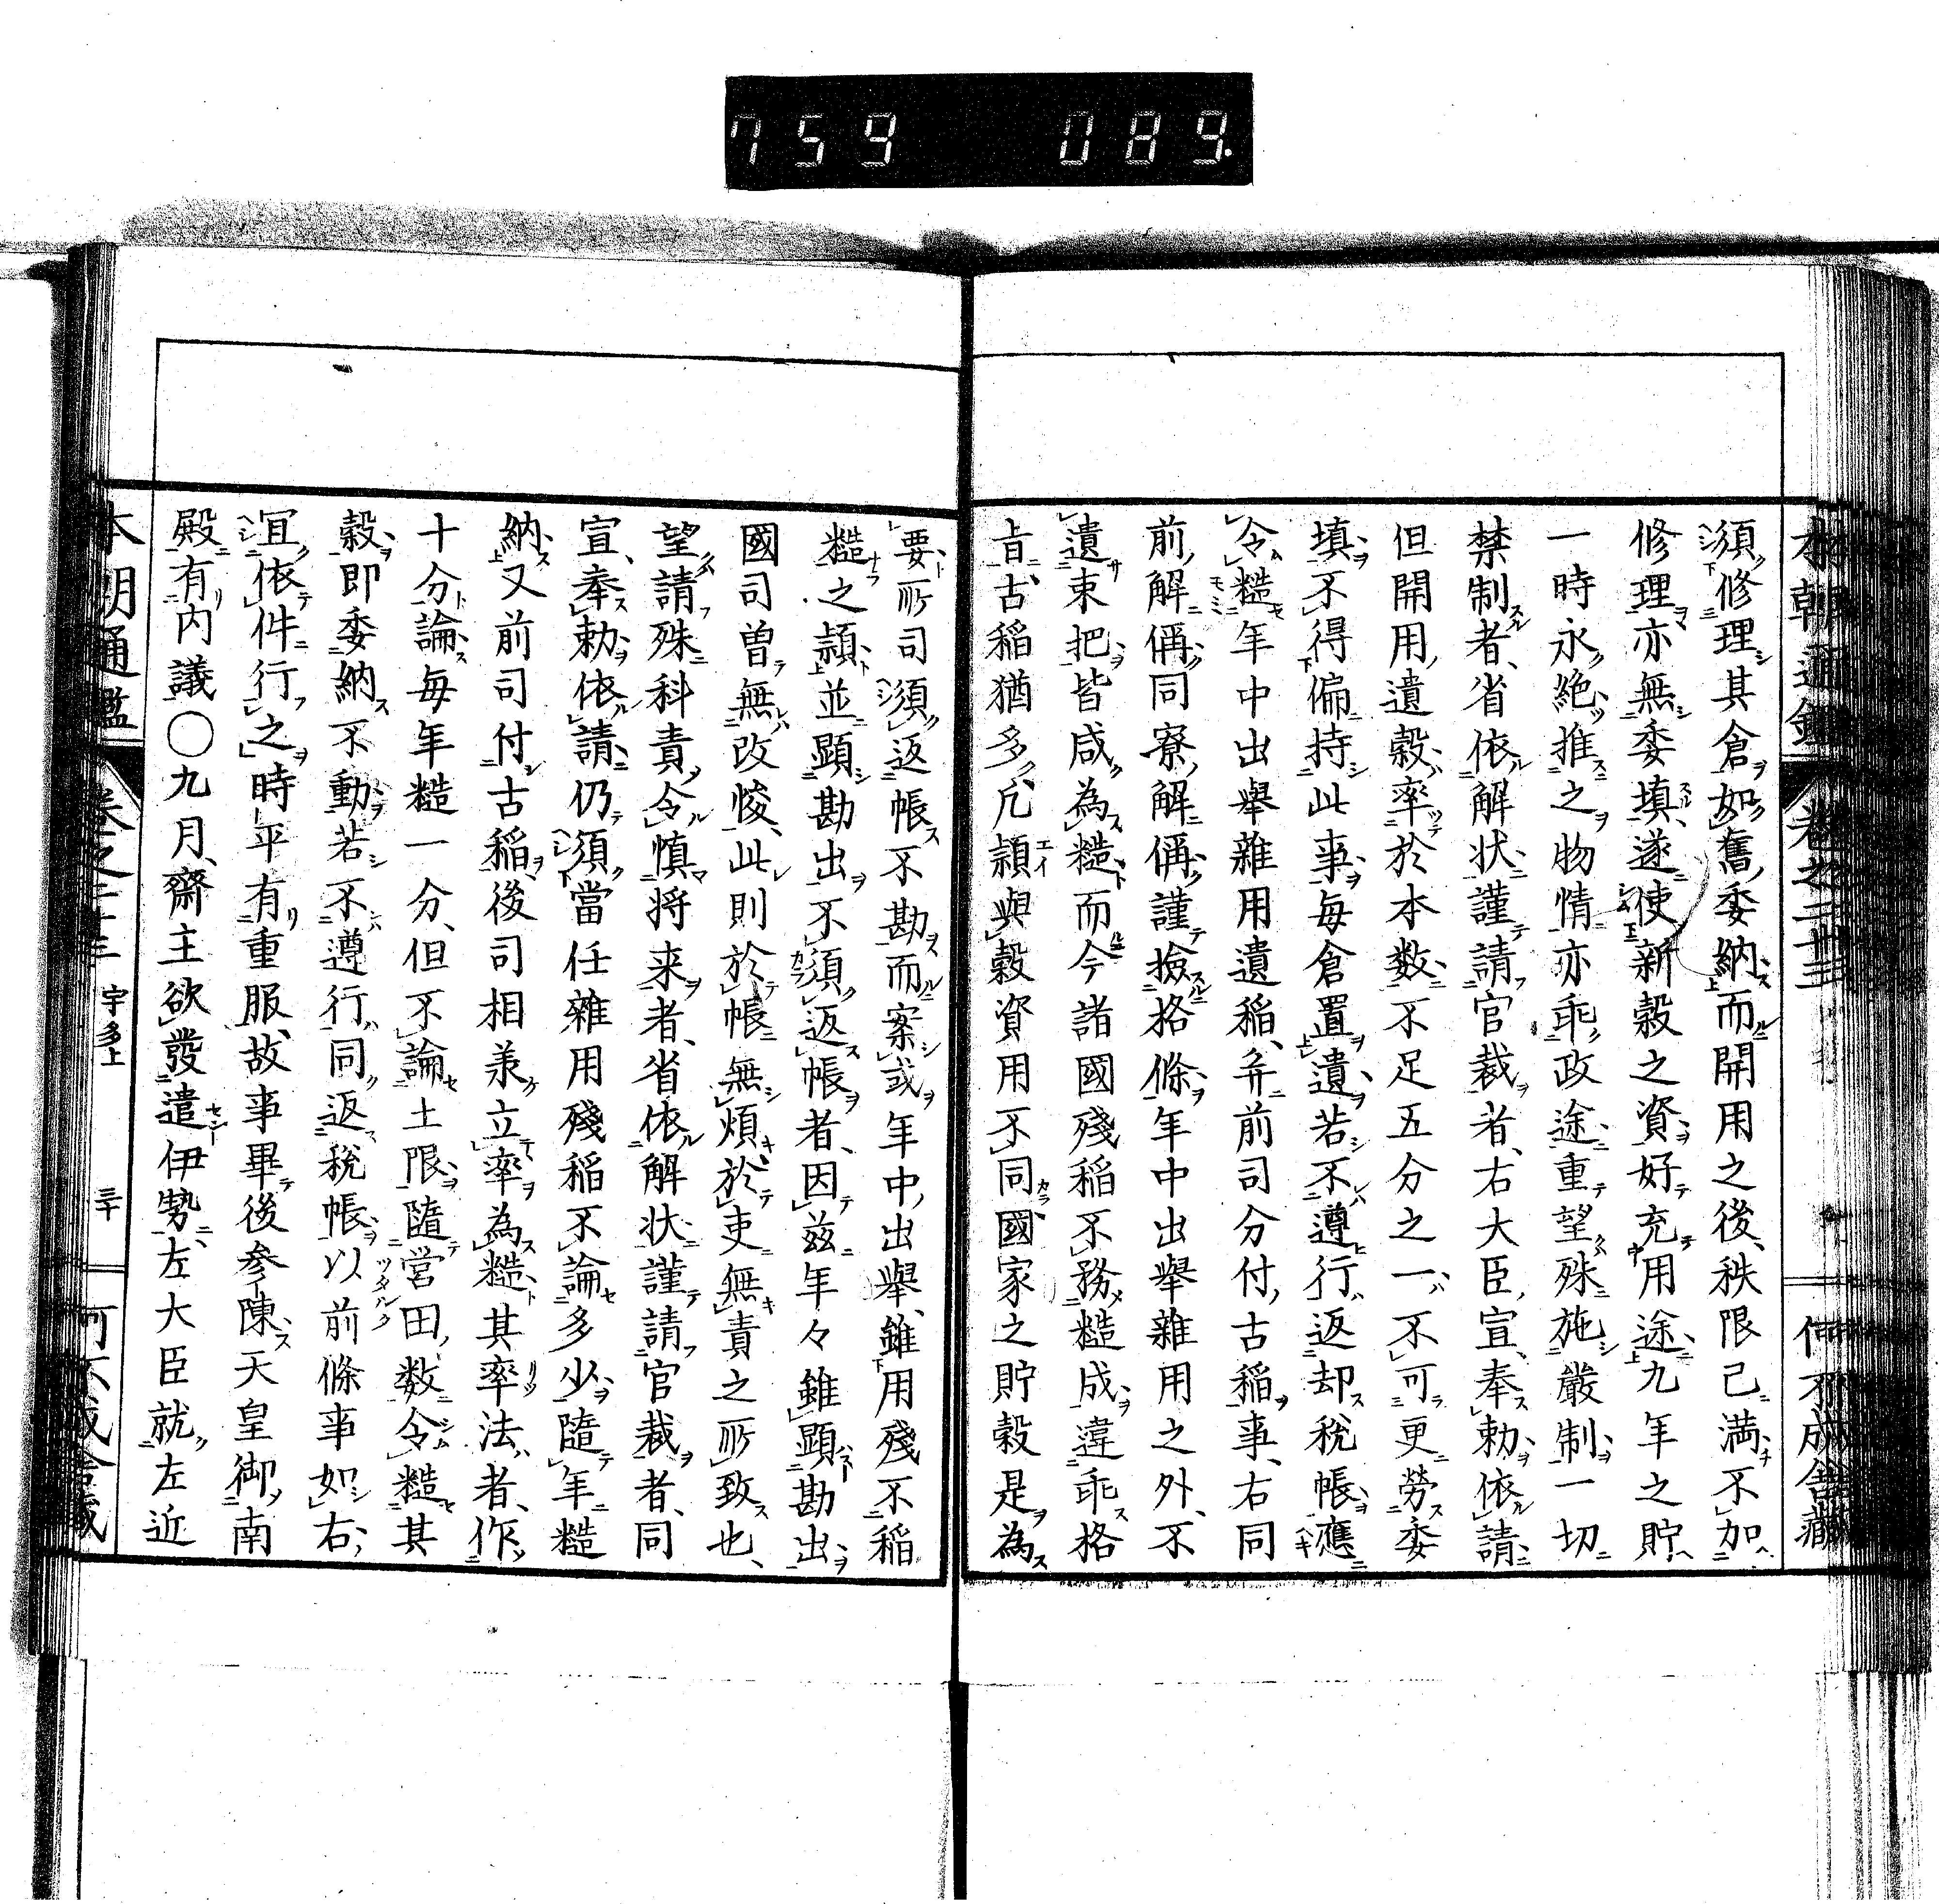 759 089.
本朝通鑑 卷之二十三 何不成舎藏
須修理其倉如舊委納而開用之後秩限已満不加
修理亦無委填遂使新穀之資好充用途九年之貯
一時永絶推之物情亦乖政途重望殊施嚴制一切
禁制者省依解状謹請官裁者右大臣宣奉勅依請
但開用遺穀率於本数不足五分之一不可更勞委
填不得偏持此事毎倉置遺若不遵行返却税帳應
令糙年中出舉雜用遺稲并前司分付古稲事右同
前解偁同寮解偁謹撿格條年中出舉雜用之外不
遺束把皆咸為糙而今諸國殘稲不務糙成違乖格
旨古稲猶多凡頴與穀資用不同國家之貯穀是為
要所司須返帳不勘而案或年中出舉雖用殘不稲
糙之頴並顕勘出不須返帳者因茲年々雖顕勘出
國司曽無改悛此則於帳無煩於吏無責之所致也
望請殊科責令慎将来者省依解状謹請官裁者同
宣奉勅依請仍須當任雜用殘稲不論多少隨年糙
納又前司付古稲後司相羕立率為糙其率法者作
十分論毎年糙一分但不論土限隨営田数令糙其
穀即委納不動若不遵行同返税帳以前條事如右
宜依件行之時平有重服故事畢後参陳天皇御南
殿有内議〇九月齋主欲發遣伊勢左大臣就左近
本朝通鑑 卷之二十三 宇多上 三十 何不成舎藏